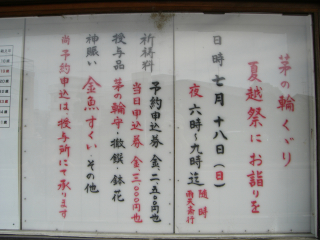 茅の輪くゞり
夏越祭にお詣りを
日時 七月十八日(日)
夜 六時〜九時迄
随時
雨天斎行
祈祷料
予約申込券 金二五〇〇円也
当日申込券 金三〇〇〇円也
授与品 茅の輪守・撤饌・鉢花
神賑い 金魚すくい その他
尚予約申込は授与所にて承ります